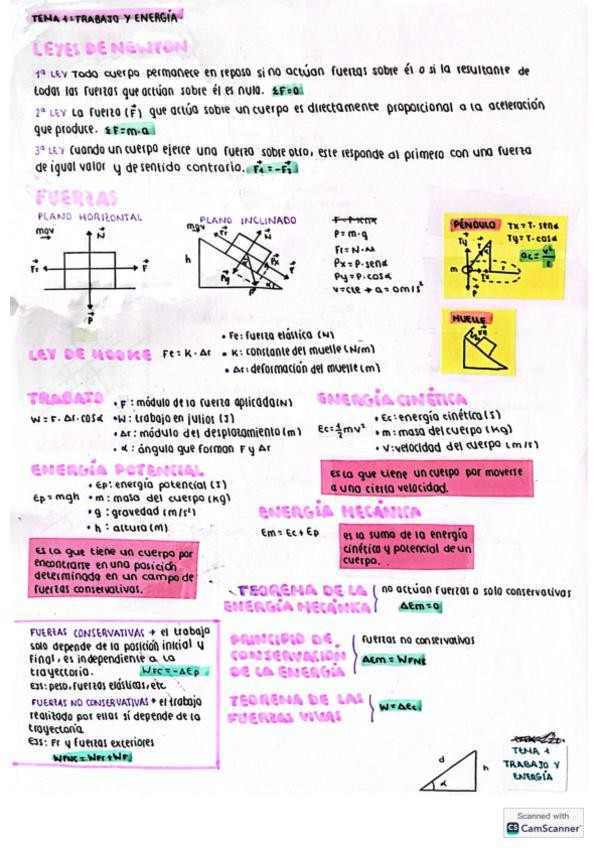 TEMA 1: TRABAJO Y ENERGÍA
LEYES DE NEWTON
1ª LEY Todo cuerpo permanece en reposo si no actúan fuerzas sobre él o si la resultante de
todas las fuerzas que actúan sobre él es nula. ΣF=0
2ª LEY La fuerza (F⃗) que actúa sobre un cuerpo es directamente proporcional a la aceleración
que produce. ΣF=m·a
3ª LEY Cuando un cuerpo ejerce una fuerza sobre otro, este responde al primero con una fuerza
de igual valor y de sentido contrario. F⃗1=-F⃗2
FUERZAS
PLANO HORIZONTAL
N
Fr
F
P
PLANO INCLINADO
N
h
Px
Py
P
α
P=m·g
Fr=N·μ
Px=P·senα
Py=P·cosα
v=cte → a=0m/s²
PÉNDULO
Tx=T·senα
Ty=T·cosα
Ty
m
P
MUELLE
LEY DE HOOKE
Fe=K·Δr
• Fe: fuerza elástica (N)
• K: constante del muelle (N/m)
• Δr: deformación del muelle (m)
TRABAJO
W=F·Δr·cosα
• F: módulo de la fuerza aplicada (N)
• W: trabajo en julios (J)
• Δr: módulo del desplazamiento (m)
• α: ángulo que forman F y Δr
ENERGÍA CINÉTICA
Ec=½mv²
• Ec: energía cinética (J)
• m: masa del cuerpo (Kg)
• V: velocidad del cuerpo (m/s)
es la que tiene un cuerpo por moverse
a una cierta velocidad.
ENERGÍA POTENCIAL
Ep=mgh
• Ep: energía potencial (J)
• m: masa del cuerpo (Kg)
• g: gravedad (m/s²)
• h: altura (m)
es la que tiene un cuerpo por
encontrarse en una posición
determinada en un campo de
fuerzas conservativas.
ENERGÍA MECÁNICA
Em=Ec+Ep
es la suma de la energía
cinética y potencial de un
cuerpo.
TEOREMA DE LA
ENERGÍA MECÁNICA
no actúan fuerzas o solo conservativas
ΔEm=0
FUERZAS CONSERVATIVAS → el trabajo
solo depende de la posición inicial y
final, es independiente a la
trayectoria. WFC=-ΔEp
Ejs: peso, fuerzas elásticas, etc
FUERZAS NO CONSERVATIVAS → el trabajo
realizado por ellas sí depende de la
trayectoria
Ejs: Fr y fuerzas exteriores
PRINCIPIO DE
CONSERVACIÓN
DE LA ENERGÍA
fuerzas no conservativas
ΔEm=WFNC
TEOREMA DE LAS
FUERZAS VIVAS
W=ΔEc
d
h
α
TEMA 1
TRABAJO Y
ENERGÍA
Scanned with
CS CamScanner